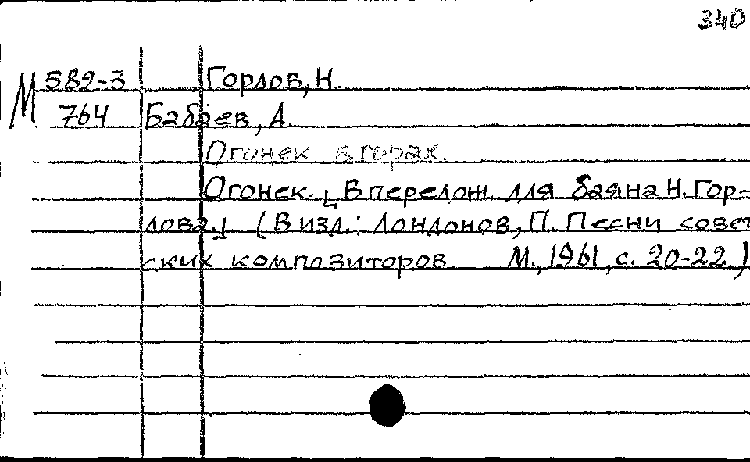 340
М 582-3 Горлов, Н.
764 Бабаев, А.
Огонек в горах.
Огонек. [В перелож. для баяна Н. Гор-
лова.] (В изд.: Лондонов, П. Песни совет
ских композиторов М., 1961, с. 20-22.)